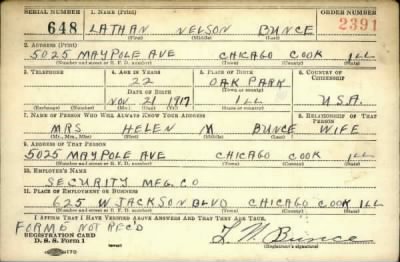 SERIAL NUMBER 1. NAME (Print) ORDER NUMBER
648 LATHAN NELSON BUNCE 2391
(First) (Middle) (Last)
2. ADDRESS (Print)
5025 MAYPOLE AVE CHICAGO COOK ILL
(Number and street or R. F. D. number) (Town) (County) (State)
3. TELEPHONE 4. AGE IN YEARS 5. PLACE OF BIRTH 6. COUNTRY OF CITIZENSHIP
22 OAK PARK
DATE OF BIRTH (Town or county)
NOV. 21 1917 ILL U.S.A.
(Exchange) (Number) (Mo.) (Day) (Yr.) (State or country)
7. NAME OF PERSON WHO WILL ALWAYS KNOW YOUR ADDRESS 8. RELATIONSHIP OF THAT PERSON
MRS HELEN M BUNCE WIFE
(Mr., Mrs., Miss) (First) (Middle) (Last)
9. ADDRESS OF THAT PERSON
5025 MAYPOLE AVE CHICAGO COOK ILL
(Number and street or R. F. D. number) (Town) (County) (State)
10. EMPLOYER'S NAME
SECURITY MFG. CO
11. PLACE OF EMPLOYMENT OR BUSINESS
625 W JACKSON BLVD CHICAGO COOK ILL
(Number and street or R. F. D. number) (Town) (County) (State)
I AFFIRM THAT I HAVE VERIFIED ABOVE ANSWERS AND THAT THEY ARE TRUE.
FORM NOT REC'D
REGISTRATION CARD
D. S. S. Form 1 L. N. Bunce
(Registrant's signature)